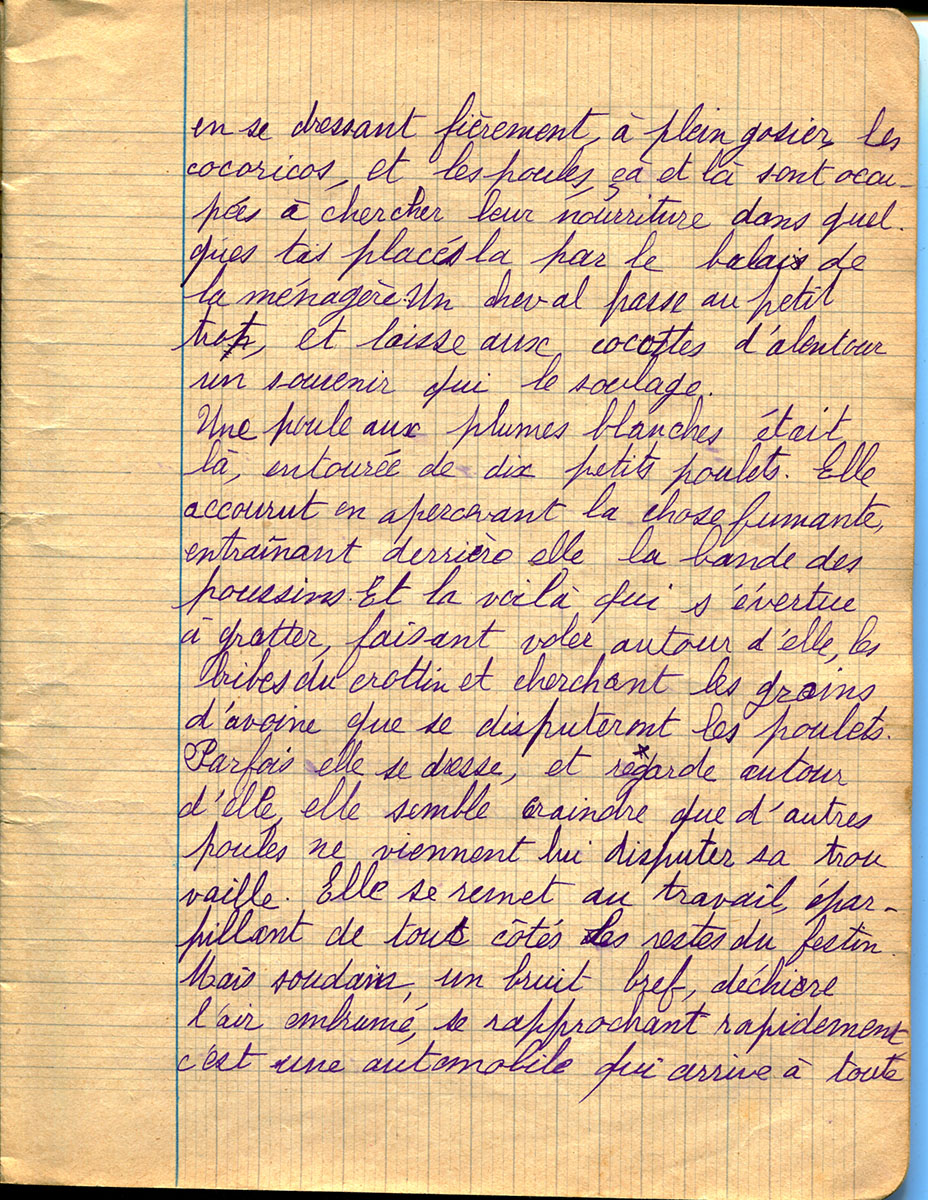 en se dressant fièrement, à plein gosier, les
cocoricos, et les poules, çà et là sont occu-
pées à chercher leur nourriture dans quel-
ques tas placés la par le balais de
la ménagère. Un cheval passe au petit
trot, et laisse aux cocottes d'alentour
un souvenir qui le soulage.
Une poule aux plumes blanches était
là, entourée de dix petits poulets. Elle
accourut en apercevant la chose fumante,
entraînant derrière elle la bande des
poussins. Et la voilà qui s'évertue
à gratter, faisant voler autour d'elle, les
bribes du crottin et cherchant les grains
d'avoine que se disputeront les poulets.
Parfois elle se dresse, et regarde autour
d'elle, elle semble craindre que d'autres
poules ne viennent lui disputer sa trou
vaille. Elle se remet au travail, épar-
pillant de tout côtés les restes du festin.
Mais soudain, un bruit bref, déchire
l'air embrumé, se rapprochant rapidement
c'est une automobile qui arrive à toute